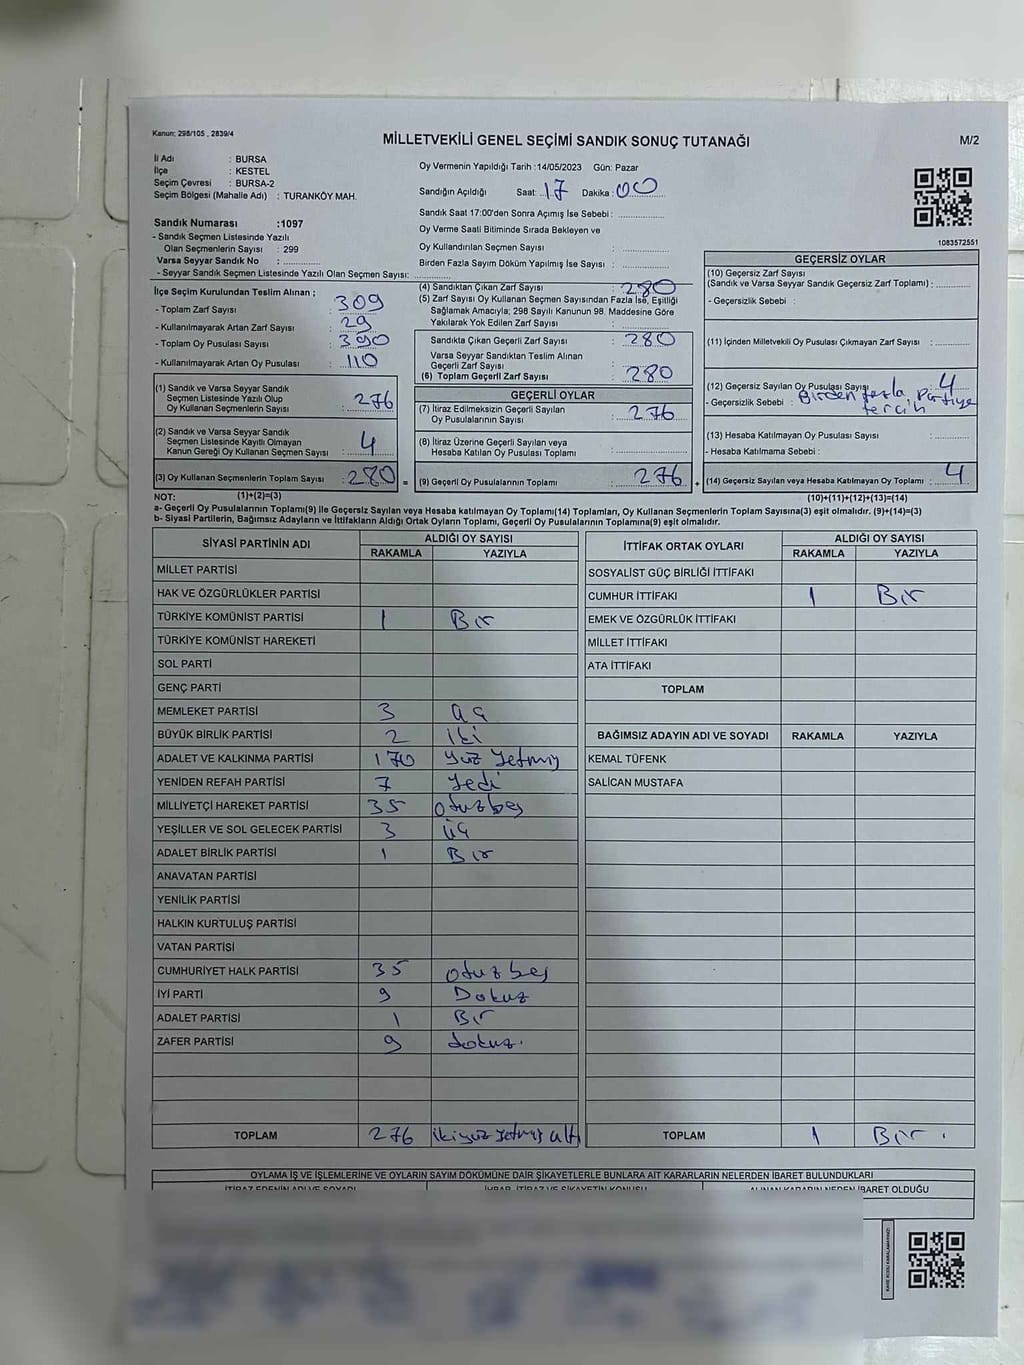 Kanun: 298/105 , 2839/4
MİLLETVEKİLİ GENEL SEÇİMİ SANDIK SONUÇ TUTANAĞI
M/2
İl Adı : BURSA
İlçe : KESTEL
Seçim Çevresi : BURSA-2
Seçim Bölgesi (Mahalle Adı) : TURANKÖY MAH.
Oy Vermenin Yapıldığı Tarih :14/05/2023 Gün: Pazar
Sandığın Açıldığı Saat: 17 Dakika: 00
Sandık Saat 17:00'den Sonra Açımış İse Sebebi :
Oy Verme Saati Bitiminde Sırada Bekleyen ve
Oy Kullandırılan Seçmen Sayısı :
Birden Fazla Sayım Döküm Yapılmış İse Sayısı :
1083572551
Sandık Numarası :1097
- Sandık Seçmen Listesinde Yazılı
Olan Seçmenlerin Sayısı : 299
Varsa Seyyar Sandık No :
- Seyyar Sandık Seçmen Listesinde Yazılı Olan Seçmen Sayısı:
İlçe Seçim Kurulundan Teslim Alınan ;
- Toplam Zarf Sayısı : 309
- Kullanılmayarak Artan Zarf Sayısı : 29
- Toplam Oy Pusulası Sayısı : 390
- Kullanılmayarak Artan Oy Pusulası : 110
(1) Sandık ve Varsa Seyyar Sandık
Seçmen Listesinde Yazılı Olup
Oy Kullanan Seçmenlerin Sayısı : 276
(2) Sandık ve Varsa Seyyar Sandık
Seçmen Listesinde Kayıtlı Olmayan
Kanun Gereği Oy Kullanan Seçmen Sayısı : 4
(3) Oy Kullanan Seçmenlerin Toplam Sayısı : 280 =
(4) Sandıktan Çıkan Zarf Sayısı : 280
(5) Zarf Sayısı Oy Kullanan Seçmen Sayısından Fazla İse, Eşitliği
Sağlamak Amacıyla; 298 Sayılı Kanunun 98. Maddesine Göre
Yakılarak Yok Edilen Zarf Sayısı :
Sandıkta Çıkan Geçerli Zarf Sayısı : 280
Varsa Seyyar Sandıktan Teslim Alınan
Geçerli Zarf Sayısı :
(6) Toplam Geçerli Zarf Sayısı : 280
GEÇERLİ OYLAR
(7) İtiraz Edilmeksizin Geçerli Sayılan
Oy Pusulalarının Sayısı : 276
(8) İtiraz Üzerine Geçerli Sayılan veya
Hesaba Katılan Oy Pusulası Toplamı :
(9) Geçerli Oy Pusulalarının Toplamı : 276 +
GEÇERSİZ OYLAR
(10) Geçersiz Zarf Sayısı
(Sandık ve Varsa Seyyar Sandık Geçersiz Zarf Toplamı) :
- Geçersizlik Sebebi :
(11) İçinden Milletvekili Oy Pusulası Çıkmayan Zarf Sayısı :
(12) Geçersiz Sayılan Oy Pusulası Sayısı : 4
- Geçersizlik Sebebi : Birden fazla partiye
tercih
(13) Hesaba Katılmayan Oy Pusulası Sayısı :
- Hesaba Katılmama Sebebi :
(14) Geçersiz Sayılan veya Hesaba Katılmayan Oy Toplamı : 4
NOT: (1)+(2)=(3) (10)+(11)+(12)+(13)=(14)
a- Geçerli Oy Pusulalarının Toplamı(9) ile Geçersiz Sayılan veya Hesaba katılmayan Oy Toplamı(14) Toplamları, Oy Kullanan Seçmenlerin Toplam Sayısına(3) eşit olmalıdır. (9)+(14)=(3)
b- Siyasi Partilerin, Bağımsız Adayların ve İttifakların Aldığı Ortak Oyların Toplamı, Geçerli Oy Pusulalarının Toplamına(9) eşit olmalıdır.
SİYASİ PARTİNİN ADI ALDIĞI OY SAYISI
RAKAMLA YAZIYLA
MİLLET PARTİSİ
HAK VE ÖZGÜRLÜKLER PARTİSİ
TÜRKİYE KOMÜNİST PARTİSİ 1 Bir
TÜRKİYE KOMÜNİST HAREKETİ
SOL PARTİ
GENÇ PARTİ
MEMLEKET PARTİSİ 3 üç
BÜYÜK BİRLİK PARTİSİ 2 iki
ADALET VE KALKINMA PARTİSİ 170 Yüz Yetmiş
YENİDEN REFAH PARTİSİ 7 Yedi
MİLLİYETÇİ HAREKET PARTİSİ 35 otuzbeş
YEŞİLLER VE SOL GELECEK PARTİSİ 3 üç
ADALET BİRLİK PARTİSİ 1 Bir
ANAVATAN PARTİSİ
YENİLİK PARTİSİ
HALKIN KURTULUŞ PARTİSİ
VATAN PARTİSİ
CUMHURİYET HALK PARTİSİ 35 otuz beş
İYİ PARTİ 9 Dokuz
ADALET PARTİSİ 1 Bir
ZAFER PARTİSİ 9 dokuz.
TOPLAM 276 ikiyüz yetmiş altı
İTTİFAK ORTAK OYLARI ALDIĞI OY SAYISI
RAKAMLA YAZIYLA
SOSYALİST GÜÇ BİRLİĞİ İTTİFAKI
CUMHUR İTTİFAKI 1 Bir
EMEK VE ÖZGÜRLÜK İTTİFAKI
MİLLET İTTİFAKI
ATA İTTİFAKI
TOPLAM
BAĞIMSIZ ADAYIN ADI VE SOYADI RAKAMLA YAZIYLA
KEMAL TÜFENK
SALİCAN MUSTAFA
TOPLAM 1 Bir.
OYLAMA İŞ VE İŞLEMLERİNE VE OYLARIN SAYIM DÖKÜMÜNE DAİR ŞİKAYETLERLE BUNLARA AİT KARARLARIN NELERDEN İBARET BULUNDUKLARI
İTİRAZ EDENİN ADI VE SOYADI İHBAR, İTİRAZ VE ŞİKAYETİN KONUSU ALINAN KARARIN NEDEN İBARET OLDUĞU